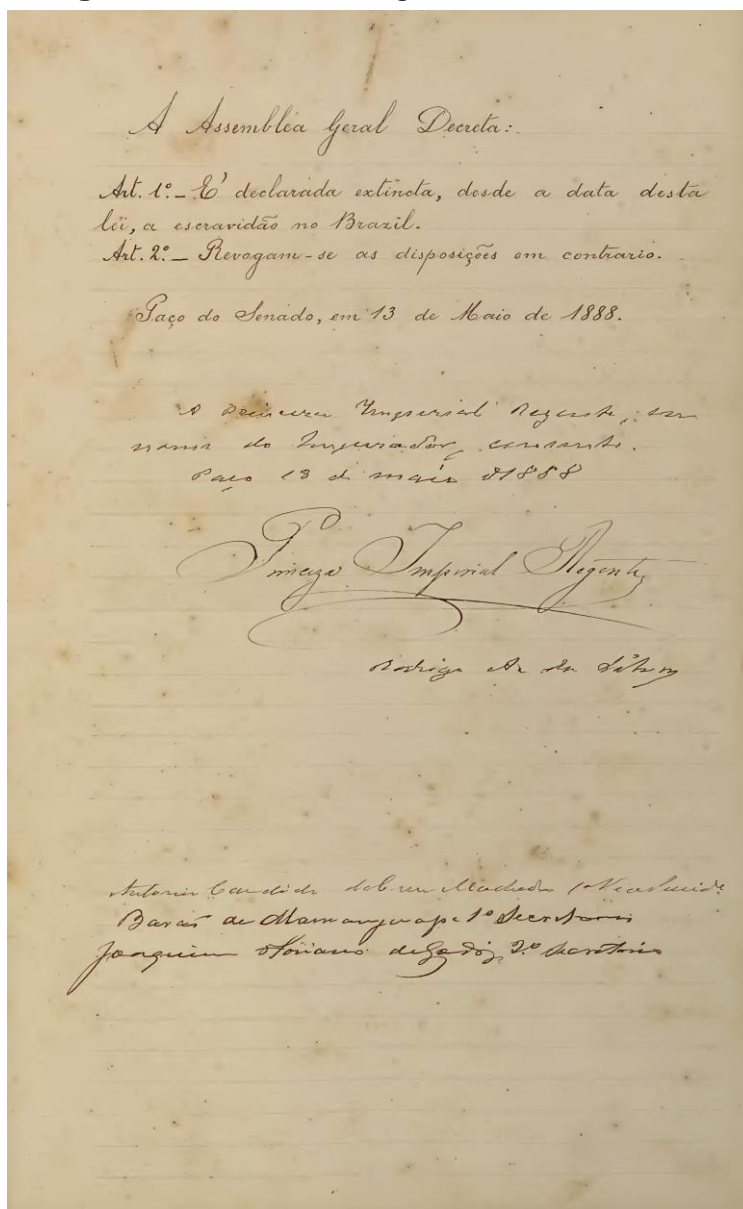 A Assembléa Geral Decreta:
Art. 1º_ E' declarada extincta, desde a data desta
lei, a escravidão no Brazil.
Art. 2º_ Revogam-se as disposições em contrario.
Paço do Senado, em 13 de Maio de 1888.
A Princeza Imperial Regente, em
nome do Imperador, consente.
Paço 13 de maio d 1888
Princeza Imperial Regente
Rodrigo A. da Silva
Antonio Candido Machado
Barão de Mamanguape 1º Secretario
Joaquim Floriano de Godoy, 2º Secretario